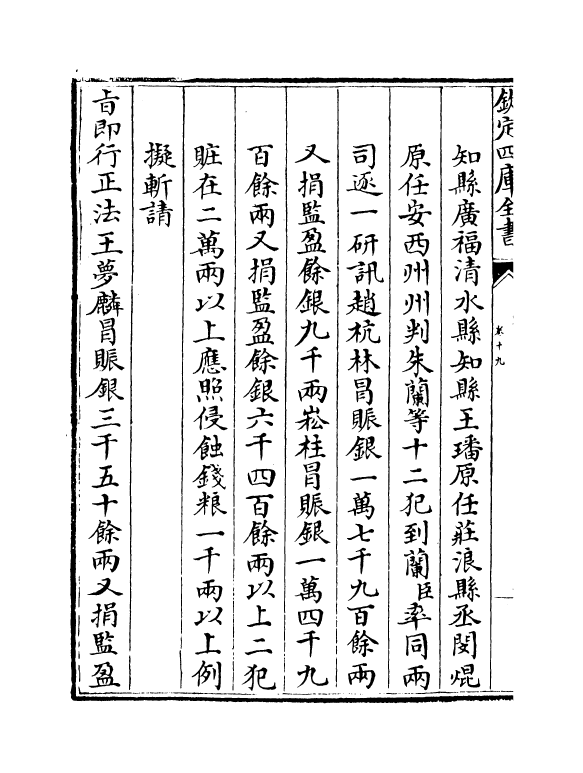 欽定四庫全書
卷十九
知縣廣福清水縣知縣王璠原任莊浪縣丞閔焜
原任安西州州判朱蘭等十二犯到蘭臣率同兩
司逐一研訊趙杭林冒賑銀一萬七千九百餘兩
又捐監盈餘銀九千兩崧柱冒賑銀一萬四千九
百餘兩又捐監盈餘銀六千四百餘兩以上二犯
賍在二萬兩以上應照侵蝕錢粮一千兩以上例
擬斬請
㫖即行正法王夢麟冒賑銀三千五十餘兩又捐監盈